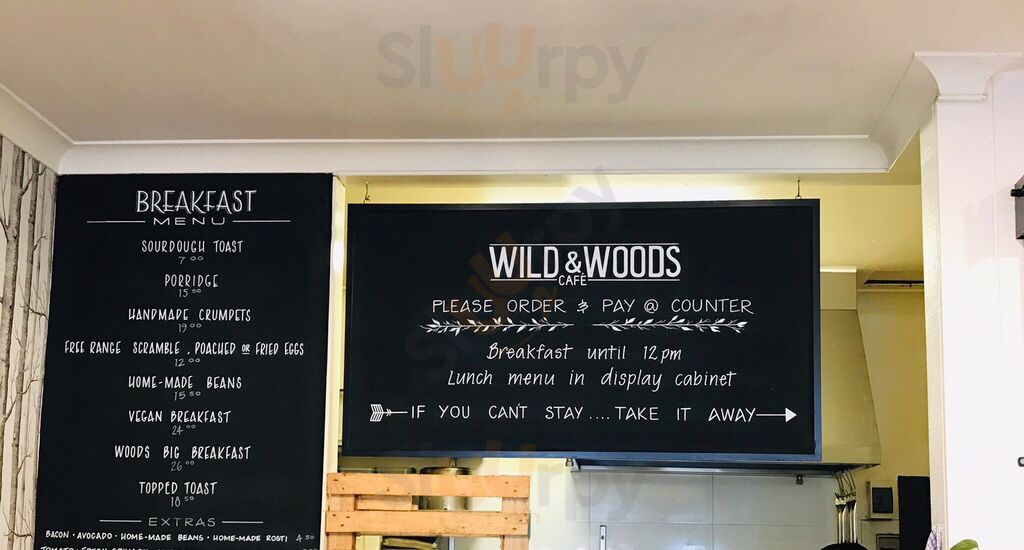 Sluurpy
BREAKFAST
MENU
SOURDOUGH TOAST
7 00
PORRIDGE
15 50
HANDMADE CRUMPETS
19 00
FREE RANGE SCRAMBLE, POACHED OR FRIED EGGS
12 00
HOME-MADE BEANS
15 50
VEGAN BREAKFAST
24 00
WOODS BIG BREAKFAST
26 00
TOPPED TOAST
18 50
EXTRAS
BACON · AVOCADO · HOME-MADE BEANS · HOME-MADE ROSTI 4 50
WILD & WOODS
CAFÉ
PLEASE ORDER & PAY @ COUNTER
Breakfast until 12pm
Lunch menu in display cabinet
IF YOU CAN'T STAY .... TAKE IT AWAY